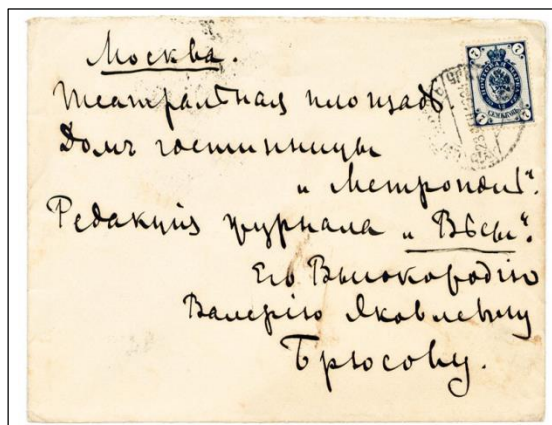 Москва.
Театральная площадь
Домъ гостинницы
„Метрополь“.
Редакція журнала „Вѣсы“.
Его Высокородію
Валерію Яковлевичу
Брюсову.
7 7
7 7